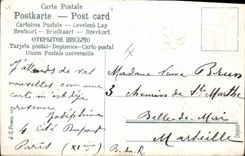 Carte Postale
Postkarte — Post card
Cartolina Postale — Levelező Lap
Brefkort — Briefkaart — Brevkort
ОТКРЫТОЕ ПИСЬМО
Tarjeta postal — Dopisnice — Carta postal
Union postale universelle
J'attends de vos
nouvelles
carte
Joséphine
6 Cité Dupont
Paris (XIe)
Madame Veuve Brun
3 Chemins de Ste Marthe
Belle-de-Mai
Marseille
B. du R.